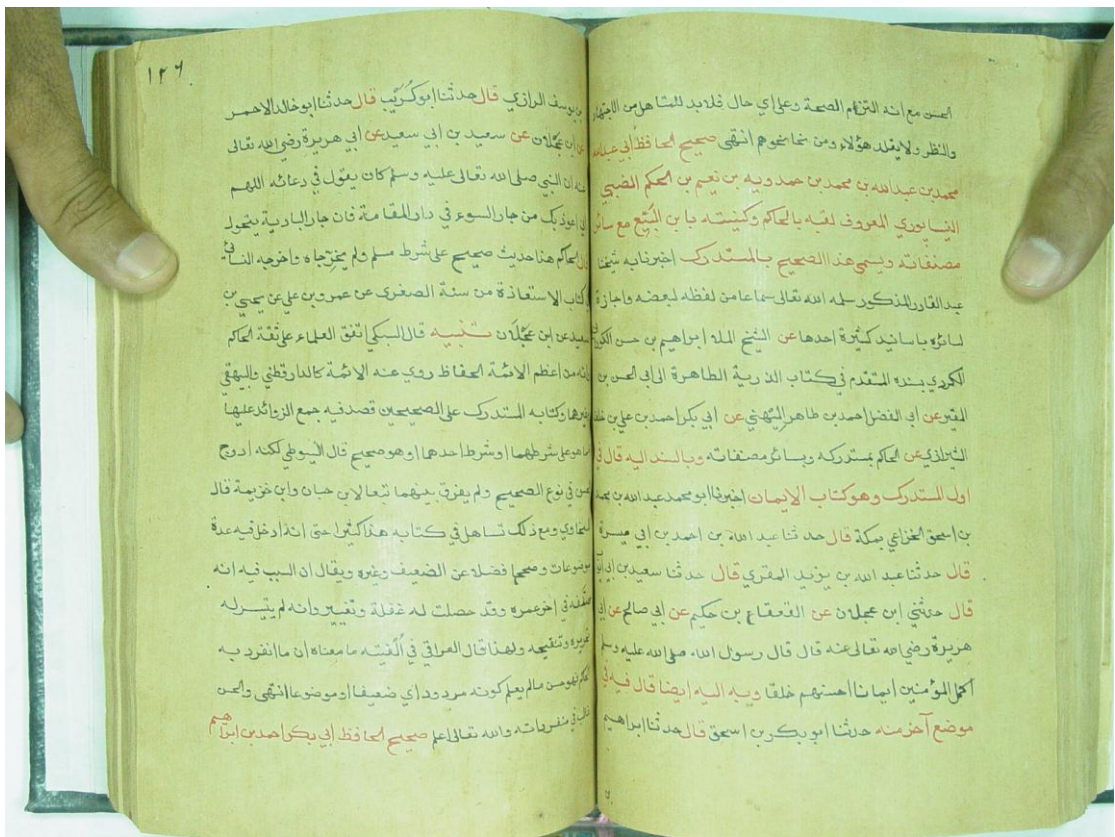 الحسن مع انه التزم الصحة وعلى اي حال فلابد للمتاهل من الاجتهاد
والنظر ولا يقلد هؤلاء ومن نحا نحوهم انتهى صحيح الحافظ أبي عبدالله
محمد بن عبدالله بن محمد بن حمدويه بن نعيم بن الحكم الضبي
النيسابوري المعروف لقبه بالحاكم وكنيته بابن البيّع مع سائر
مصنفاته ويسمى هذا الصحيح بالمستدرك اخبرنا به شيخنا
عبد القادر المذكور سلمه الله تعالى سماعا من لفظه لبعضه واجازة
لسائره باسانيد كثيرة احدها عن الشيخ الملا ابراهيم بن حسن
الكردي بسنده المتقدم في كتاب الذرية الطاهرة الى ابي الحسن بن
المقير عن ابي الفضل احمد بن طاهر الميهني عن ابي بكر احمد بن علي بن خلف
الشيرازي عن الحاكم بمستدركه وبسائر مصنفاته وبالسند اليه قال في
اول المستدرك وهو كتاب الايمان اخبرنا ابو محمد عبد الله بن محمد
بن اسحق الخزاعي بمكة قال حدثنا عبد الله بن احمد بن ابي ميسرة
قال حدثنا عبد الله بن يزيد المقري قال حدثنا سعيد بن ابي
قال حدثني ابن عجلان عن القعقاع بن حكيم عن ابي صالح عن ابي
هريرة رضي الله تعالى عنه قال قال رسول الله صلى الله عليه وسلم
اكمل المؤمنين ايمانا احسنهم خلقا وبه اليه ايضا قال فيه في
موضع آخر منه حدثنا ابو بكر بن اسحق قال حدثنا ابراهيم
١٢٦
بن يوسف الرازي قال حدثنا ابو كُرَيْب قال حدثنا ابو خالد الاحمر
عن ابن عَجْلان عن سعيد بن ابي سعيد عن أبي هريرة رضي الله تعالى
عنه ان النبي صلى الله تعالى عليه وسلم كان يقول في دعائه اللهم
اني اعوذ بك من جار السوء في دار المقامة فان جار البادية يتحول
قال الحاكم هذا حديث صحيح على شرط مسلم ولم يخرجاه واخرجه النسائي
في كتاب الاستعاذة من سننه الصغرى عن عمرو بن علي عن يحيى بن
سعيد عن ابن عَجْلَان تنبيه قال السبكي اتفق العلماء على ثقة الحاكم
وانه من اعظم الائمة الحفاظ روى عنه الائمة كالدارقطني والبيهقي
وغيرهما وكتابه المستدرك على الصحيحين قصد فيه جمع الزوائد عليها
مما هو على شرطهما او شرط احدهما او هو صحيح قال السيوطي لكنه ادرج
الحسن في نوع الصحيح ولم يفرق بينهما تبعا لابن حبان وابن خزيمة قال
السخاوي ومع ذلك تساهل في كتابه هذا كثيرا حتى انه ادخل فيه عدة
موضوعات وصححها فضلا عن الضعيف وغيره ويقال ان السبب فيه انه
صنّفه في اخر عمره وقد حصلت له غفلة وتغيير وانه لم يتيسر له
تحريره وتنقيحه ولهذا قال العراقي في أَلْفيّته ما معناه ان ما انفرد به
الحاكم فهو حسن ما لم يعلم كونه مردودا اي ضعيفا او موضوعا انتهى والحسن
غالب في منفرداته والله تعالى اعلم صحيح الحافظ ابي بكر احمد بن ابراهيم